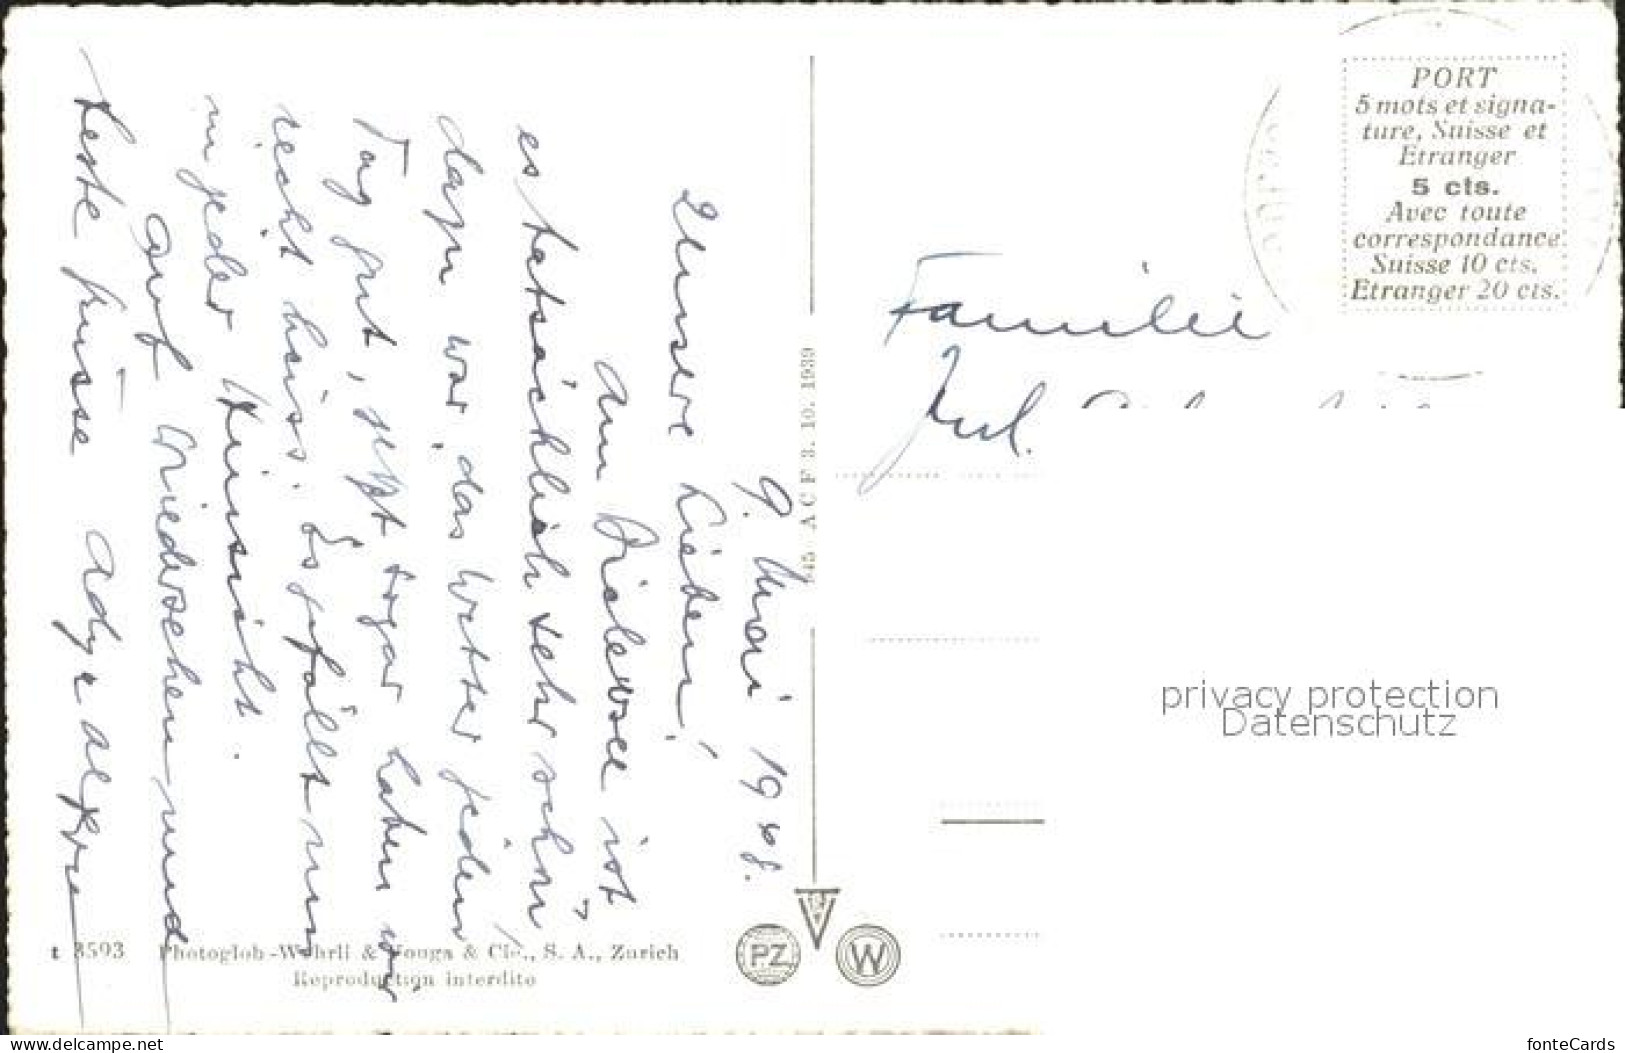 9. Mai 1948.
Unsere Lieben!
Am Bielersee ist
es tatsächlich sehr schön
dazu war das Wetter jeden
Tag gut, jetzt sogar haben wir
recht heiss. Es gefällt uns
in jeder Hinsicht.
Auf Wiedersehen und
beste Grüsse Ady &
Familie
PORT
5 mots et signa-
ture, Suisse et
Etranger
5 cts.
Avec toute
correspondance
Suisse 10 cts.
Etranger 20 cts.
A C F 3. 10. 1939
privacy protection
Datenschutz
t 3593 Photoglob-Wehrli & Vouga & Cie., S. A., Zurich
Reproduction interdite
PZ
W
www.delcampe.net
fonteCards